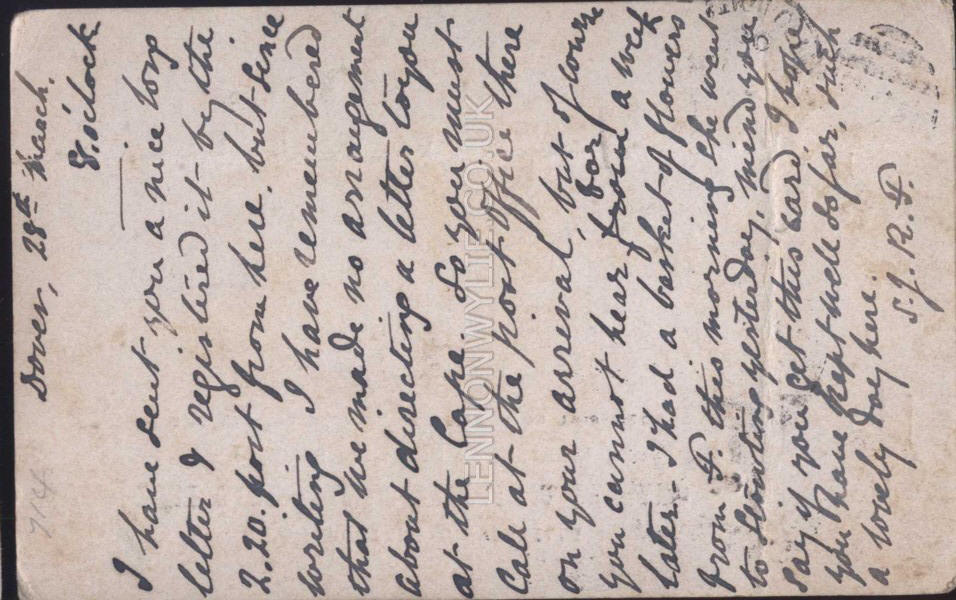 714
Dover, 28th March.
8. o'clock
I have sent you a nice long
letter & registered it by the
2.20. post from here. but since
writing I have remembered
that we made no arrangement
about directing a letter to you
at the Cape. So you must
Call at the post office there
on your arrival, but of course
you cannot hear for a week
later - I had a basket of flowers
from F. this morning She went
to yesterday, mind you
say if you get this card I hope
you have kept well so far, such
a lovely day here.
S. J. R. F.
LENNONWYLIE.CO.UK